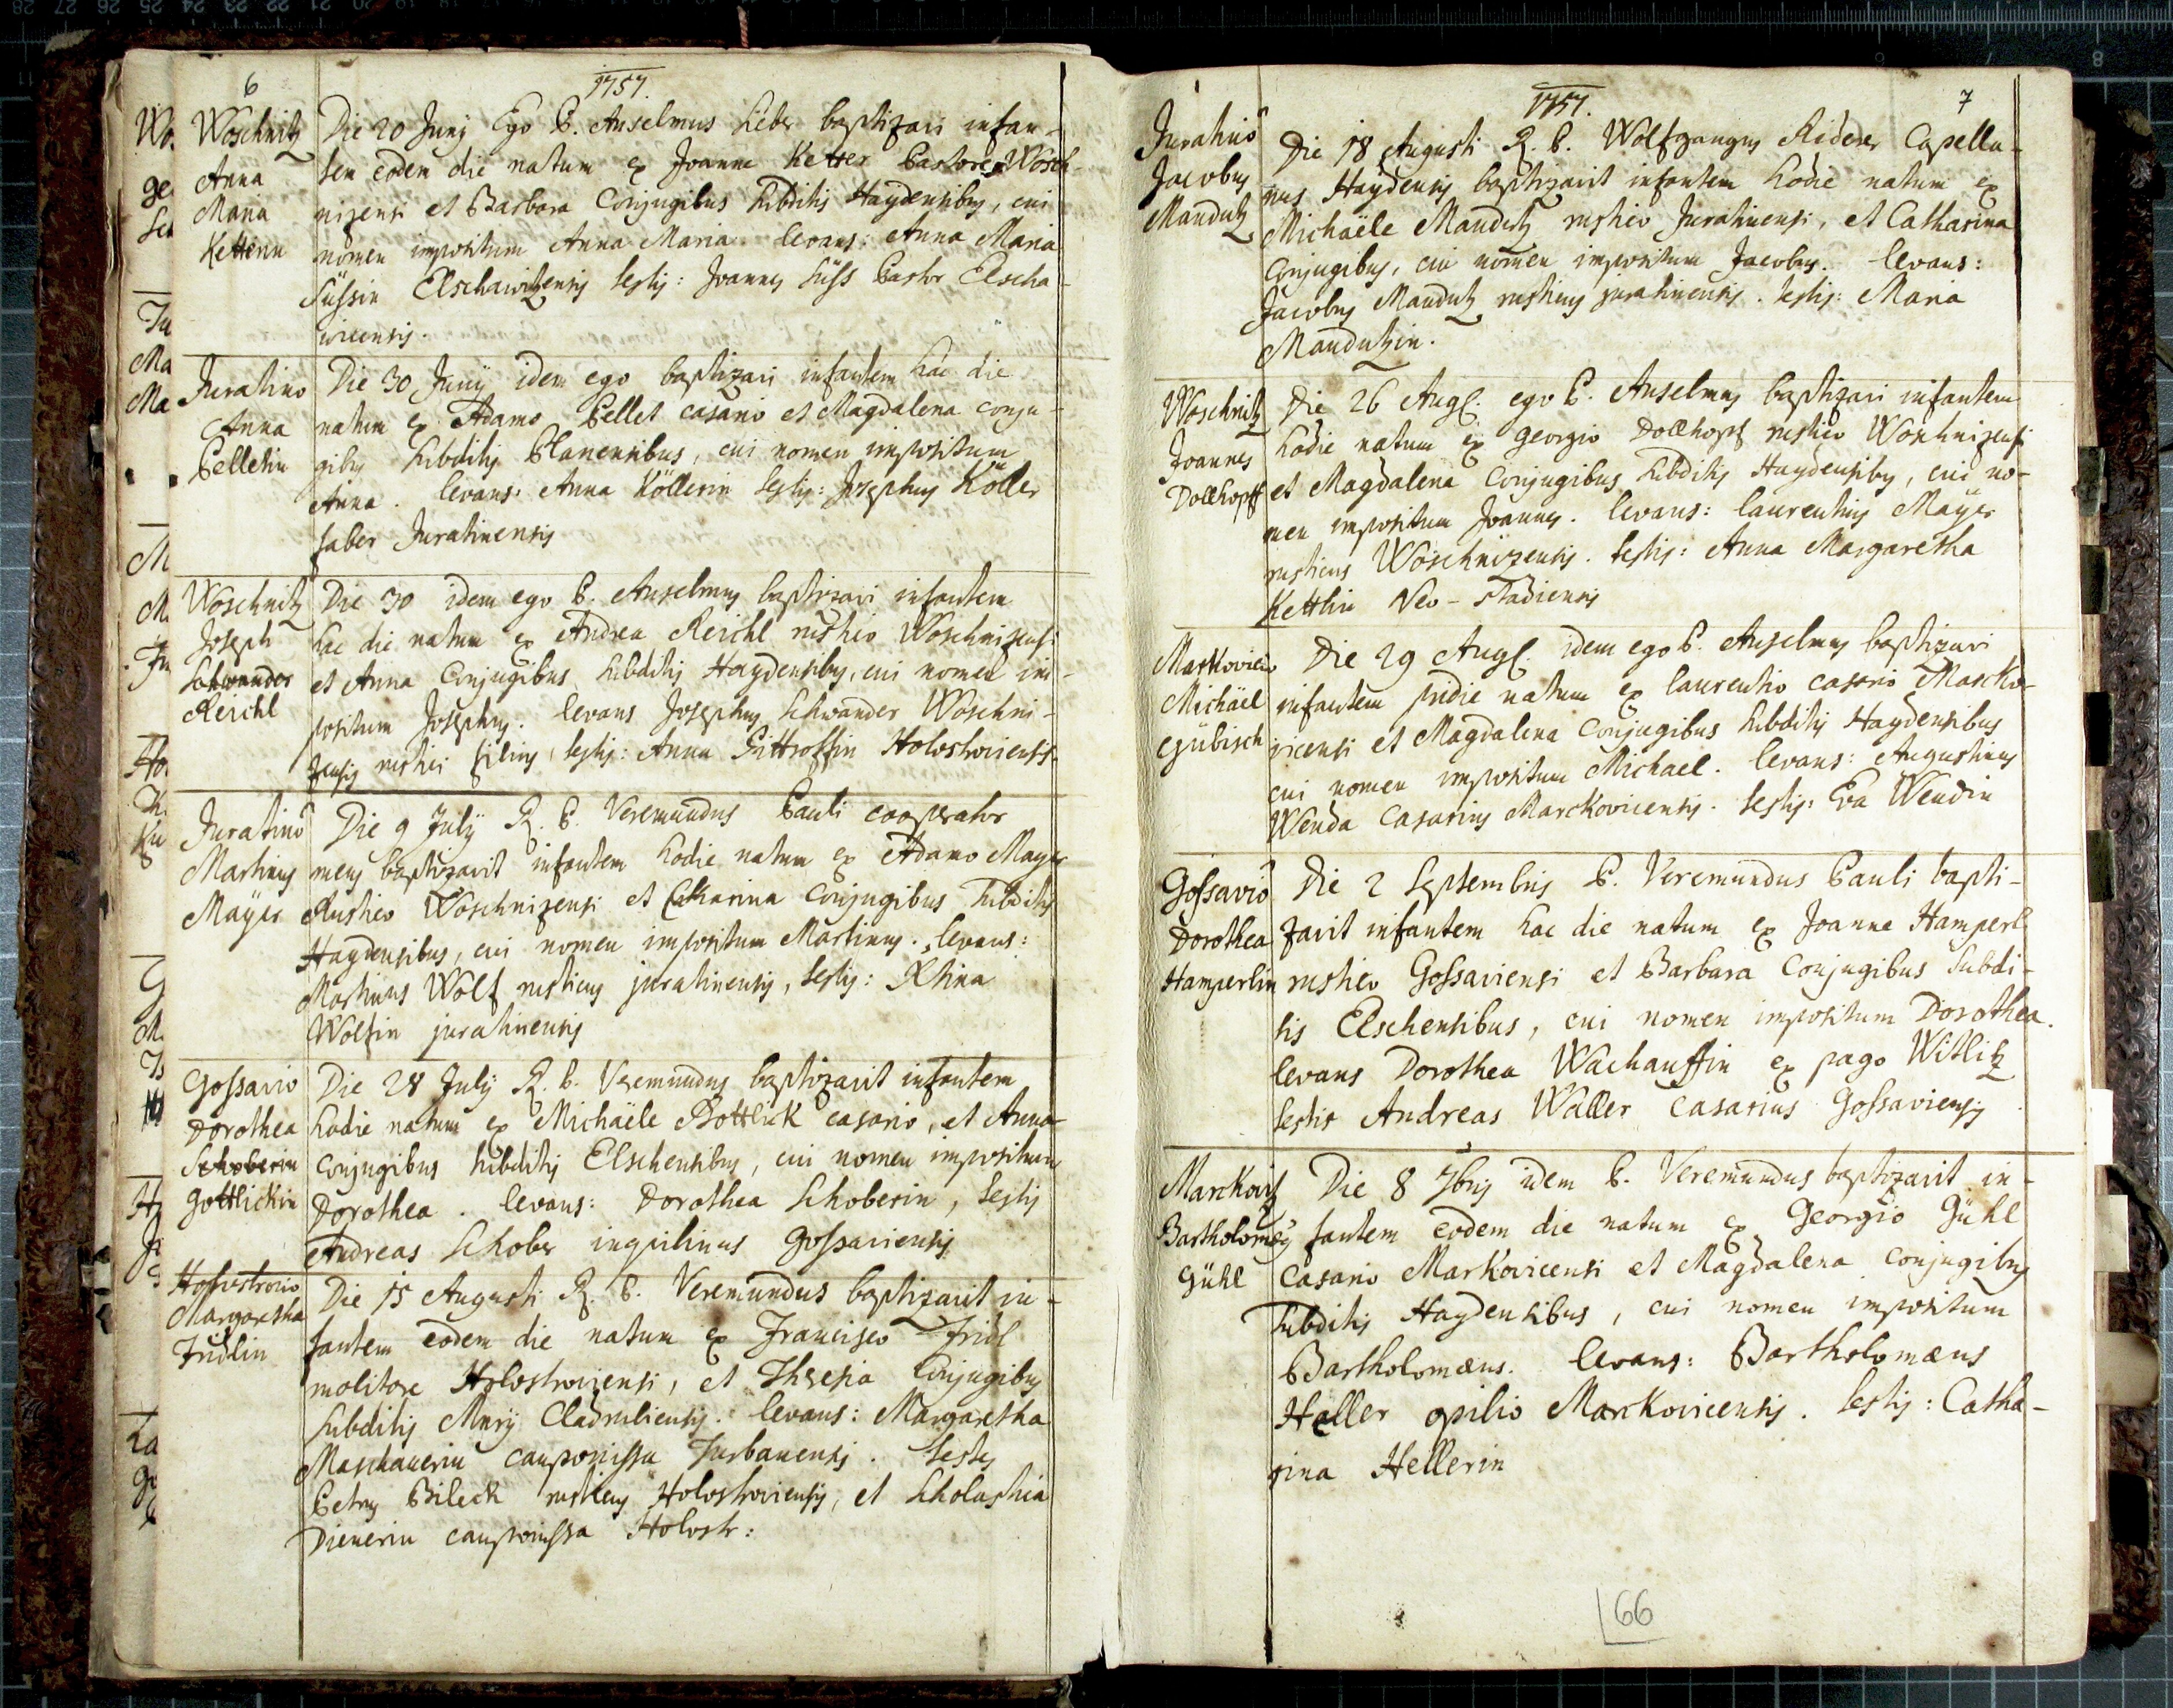 6
1757.
Woschnitz
Anna
Maria
Ketterin
Die 20 Junij Ego P. Anselmus Lieber baptizavi infan-
tem eodem die natum ex Joanne Ketter Pastore Wosch-
nizensi et Barbara Conjugibus subditis Haydensibus, cui
nomen impositum Anna Maria levans: Anna Maria
Süssin Elschawitzensis testis: Joannes Süss Pastor Elscha-
wicensis.
Juratino
Anna
Pelletin
Die 30 Junij idem ego baptizavi infantem hac die
natum ex Adamo Pellet casario et Magdalena conju-
gibus subditis Planensibus, cui nomen impositum
Anna. levans: Anna Köllerin testis: Josephus Köller
faber Juratinensis
Woschnitz
Joseph
Schwander
Reichl
Die 30 idem ego P. Anselmus baptizavi infantem
hac die natum ex Andrea Reichl rustico Woschnizensi
et Anna Conjugibus subditis Haydensibus, cui nomen im-
positum Josephus. levans Josephus Schwander Woschni-
zensis rustici filius, testis: Anna Holostroviensis.
Juratino
Martinus
Mayer
Die 9 Julij R. P. Veremundus Pauli cooperator
meus baptizavit infantem hodie natum ex Adamo Mayer
Rustico Woschnizensi et Catharina Conjugibus subditis
Haydensibus, cui nomen impositum Martinus. levans:
Martinus Wolf rusticus juratinensis, testis: Xtina
Wolfin juratinensis
Gossavio
Dorothea
Schoberin
Gottlickin
Die 28 Julij R. P. Veremundus baptizavit infantem
hodie natum ex Michaële Gottlick casario, et Anna
Conjugibus subditis Elschensibus, cui nomen impositum
Dorothea. levans: Dorothea Schoberin, testis
Andreas Schober inquilinus Gossaviensis
Holostrovio
Margaretha
Fridlin
Die 15 Augusti R. P. Veremundus baptizavit in-
fantem eodem die natum ex Francisco Fridl
molitore Holostroviensi, et Theresia Conjugibus
subditis Cladrubiensis. levans: Margaretha
Maschauerin cauponissa Turbanensis. testes
Petrus Bileck rusticus Holostroviensis, et Scholastica
Dienerin cauponissa Holostr:
7
1757.
Juratino
Jacobus
Mandutz
Die 18 Augusti R. P. Wolfgangus Riderer Capella-
nus Haydensis baptizavit infantem hodie natum ex
Michaële Mandutz rustico Juratinensi, et Catharina
Conjugibus, cui nomen impositum Jacobus. levans:
Jacobus Mandutz rusticus juratinensis. testis: Maria
Mandutzin.
Woschnitz
Joannes
Dollhopff
Die 26 Aug. ego P. Anselmus baptizavi infantem
hodie natum ex Georgio Dollhopf rustico Woschnizensi
et Magdalena Conjugibus subditis Haydensibus, cui no-
men impositum Joannes. levans: laurentius Mayer
rusticus Woschnizensis. testis: Anna Margaretha
Kettlin Neo-stadiensis
Markovicio
Michäel
Gübisch
Die 29 Aug. idem ego P. Anselmus baptizavi
infantem pridie natum ex laurentio casario Marcko-
vicensi et Magdalena Conjugibus subditis Haydensibus
cui nomen impositum Michael. levans: Augustinus
Wenda Casarius Marckovicensis. testis: Eva Wendin
Gossavio
Dorothea
Hamperlin
Die 2 Septembris P. Veremundus Pauli bapti-
zavit infantem hac die natum ex Joanne Hamperl
rustico Gossaviensi et Barbara Conjugibus Subdi-
tis Elschensibus, cui nomen impositum Dorothea.
levans Dorothea Wachauffin ex pago Witlitz
testis Andreas Waller casarius Gossaviensis
Marckovitz
Bartholomeus
Gühl
Die 8 7bris idem P. Veremundus baptizavit in-
fantem eodem die natum ex Georgio Gühl
Casario Markovicensi et Magdalena Conjugibus
subditis Haydensibus, cui nomen impositum
Bartholomæus. levans: Bartholomæus
Heller opilio Marckovicensis. testis: Catha-
rina Hellerin
66